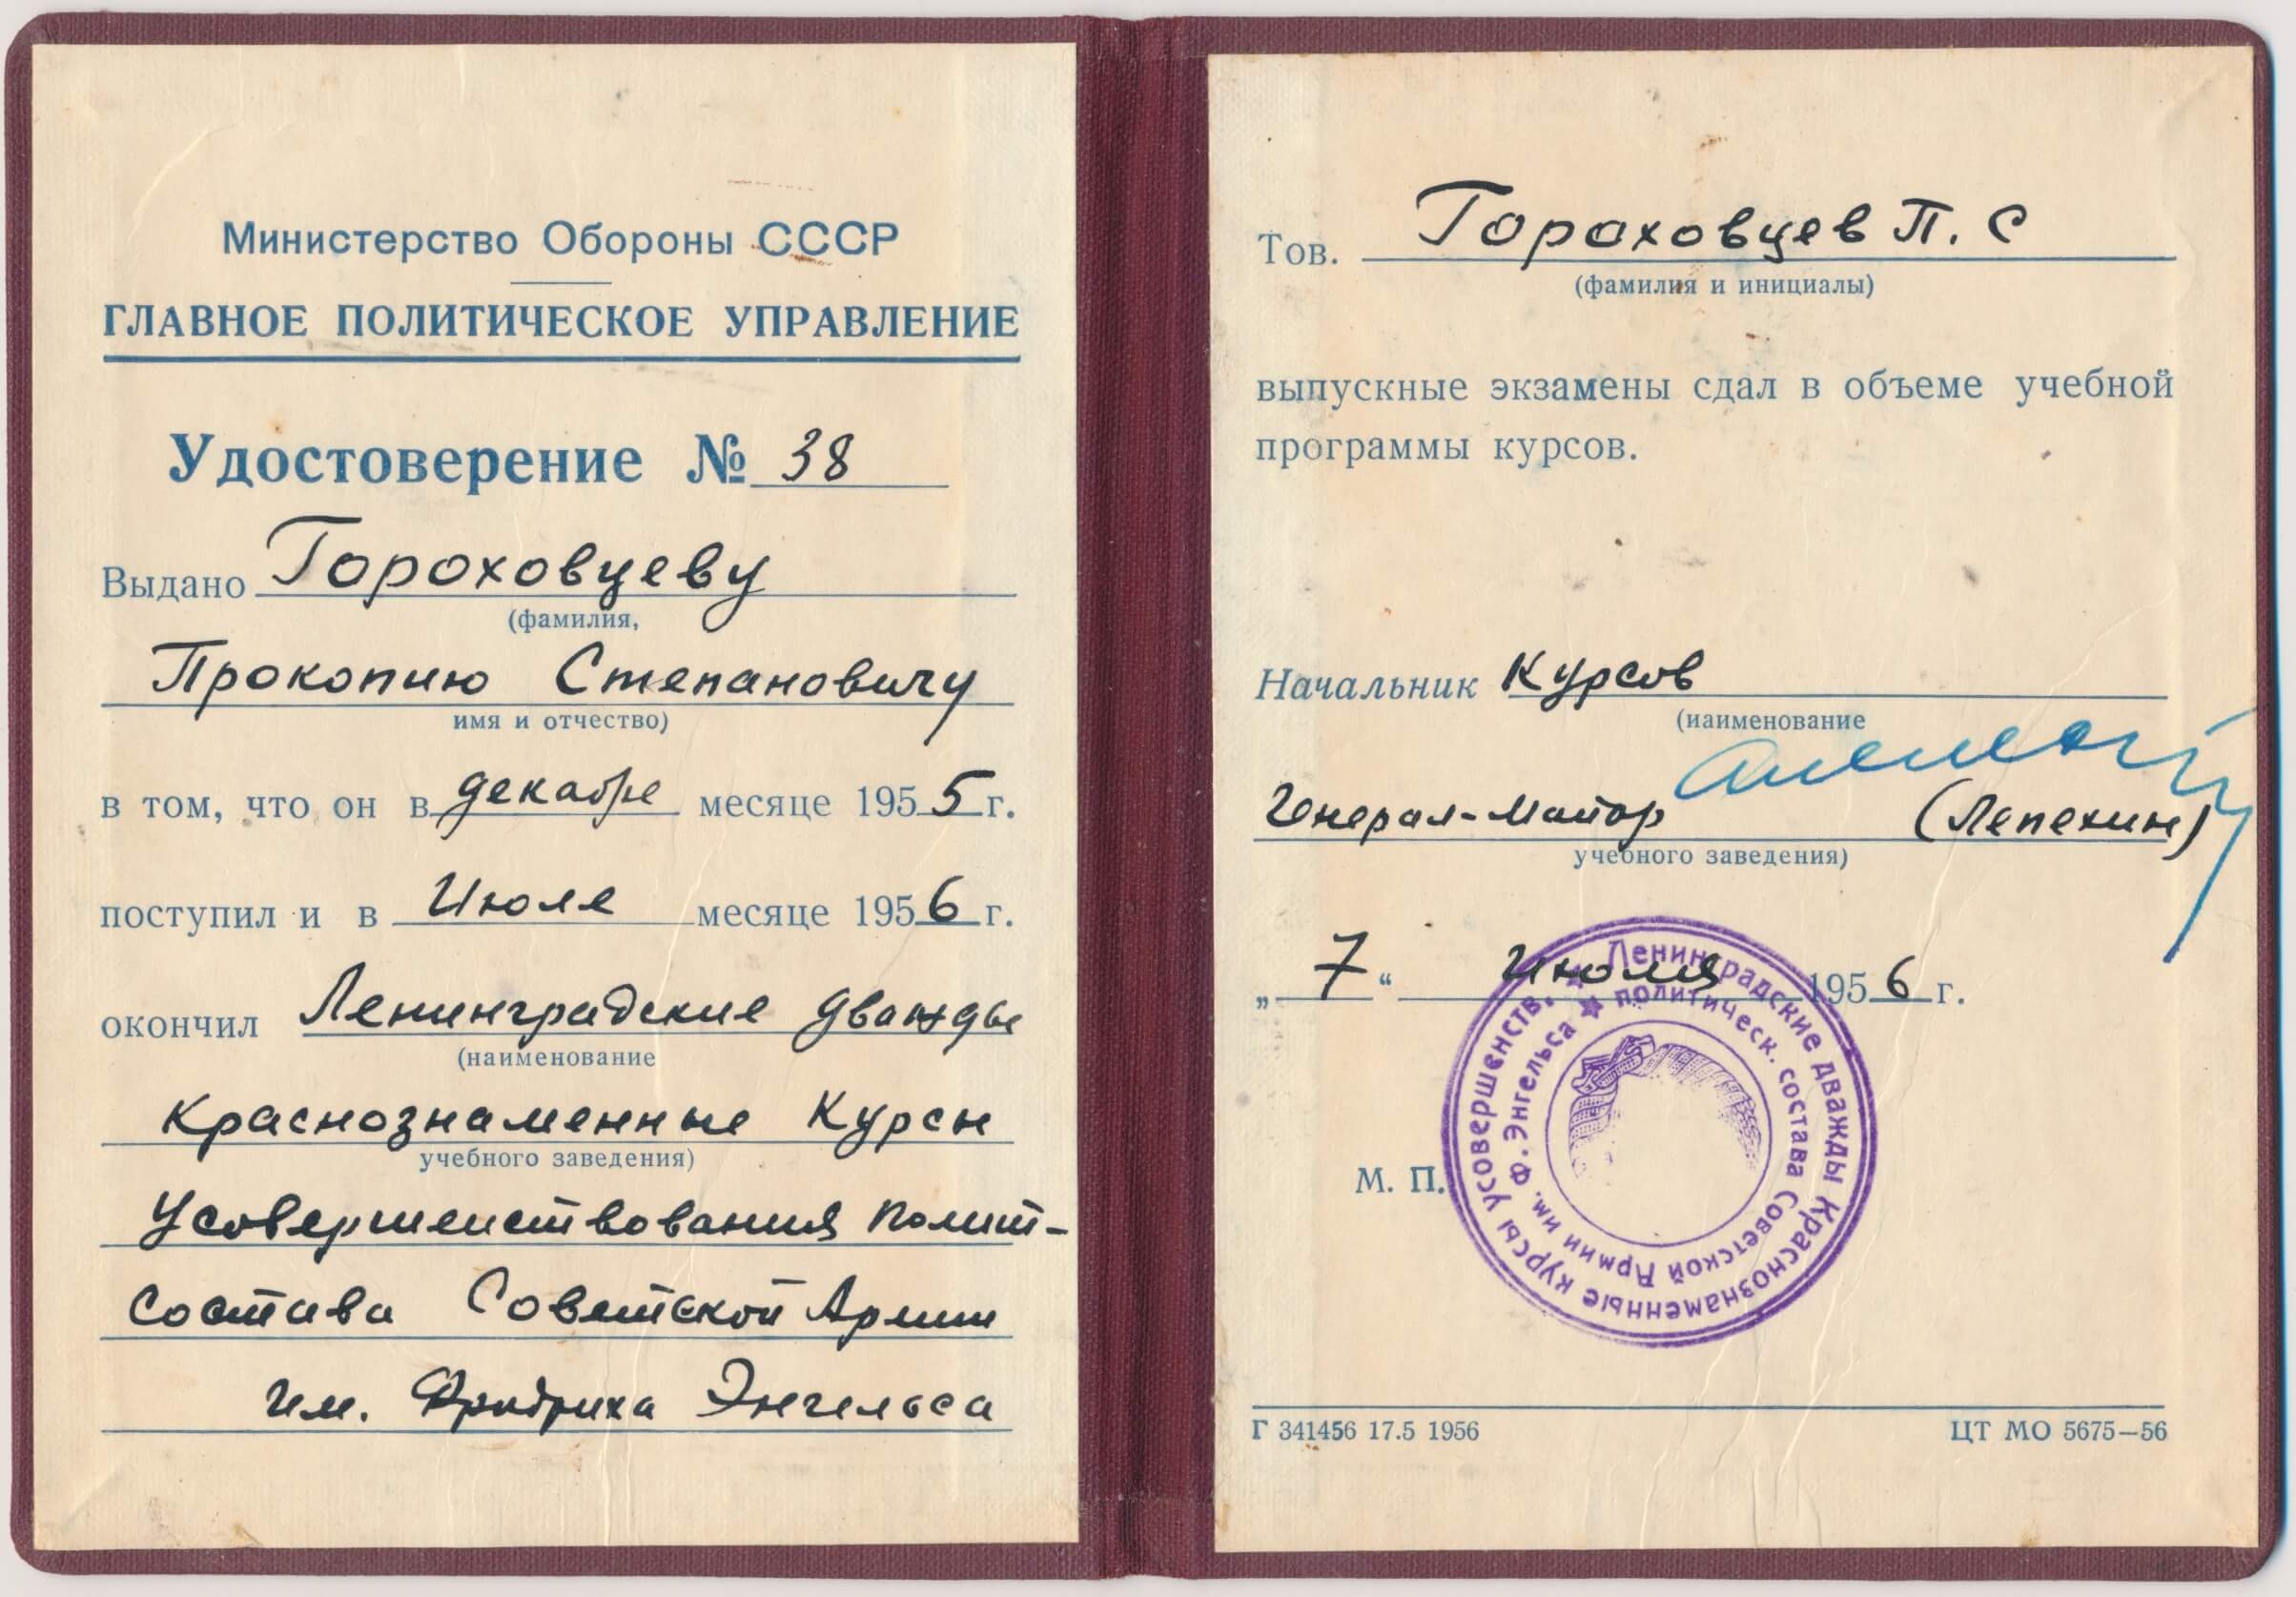 Министерство Обороны СССР
ГЛАВНОЕ ПОЛИТИЧЕСКОЕ УПРАВЛЕНИЕ
Удостоверение № 38
Выдано Гороховцеву
(фамилия,
Прокопию Степановичу
имя и отчество)
в том, что он в декабре месяце 1955 г.
поступил и в Июле месяце 1956 г.
окончил Ленинградские дважды
(наименование
Краснознаменные Курсы
учебного заведения)
Усовершенствования полит-
состава Советской Армии
им. Фридриха Энгельса
Тов. Гороховцев П. С
(фамилия и инициалы)
выпускные экзамены сдал в объеме учебной
программы курсов.
Начальник Курсов
(наименование
Генерал-Майор (Лепехин)
учебного заведения)
„7“ Июля 1956 г.
М. П.
Ленинградские дважды Краснознаменные курсы усовершенств.
политическ. состава Советской Армии им. Ф. Энгельса
Г 341456 17.5 1956 ЦТ МО 5675—56